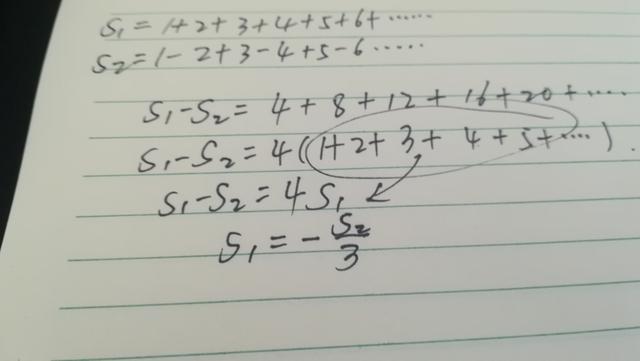 S₁ = 1+2+3+4+5+6+······
S₂ = 1-2+3-4+5-6······
S₁-S₂ = 4+8+12+16+20+····
S₁-S₂ = 4(1+2+3+4+5+····).
S₁-S₂ = 4S₁
S₁ = -S₂/3